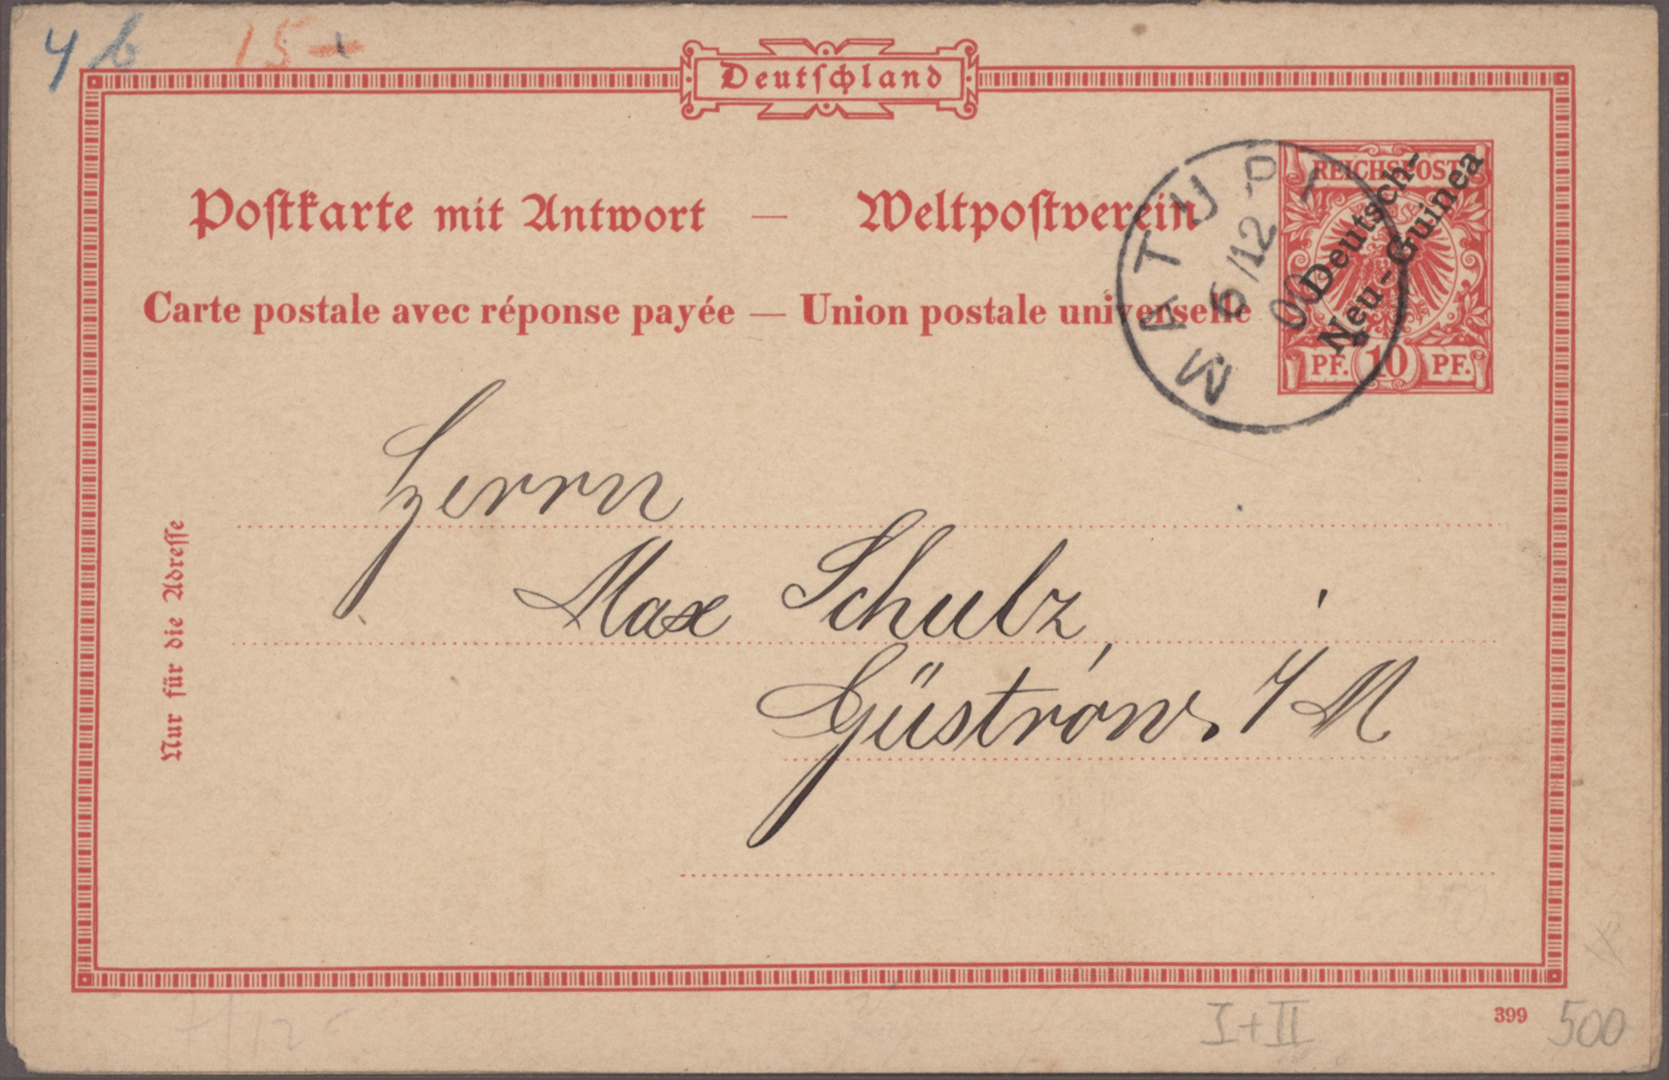 4 b 15-
Deutschland
REICHSPOST
Deutsch-
Neu-Guinea
PF. 10 PF.
MATUPI
6/12
00
Postkarte mit Antwort — Weltpostverein
Carte postale avec réponse payée — Union postale universelle
Herrn
Max Schulz,
Güstrów. i/M
Nur für die Adresse
399
I+II
500